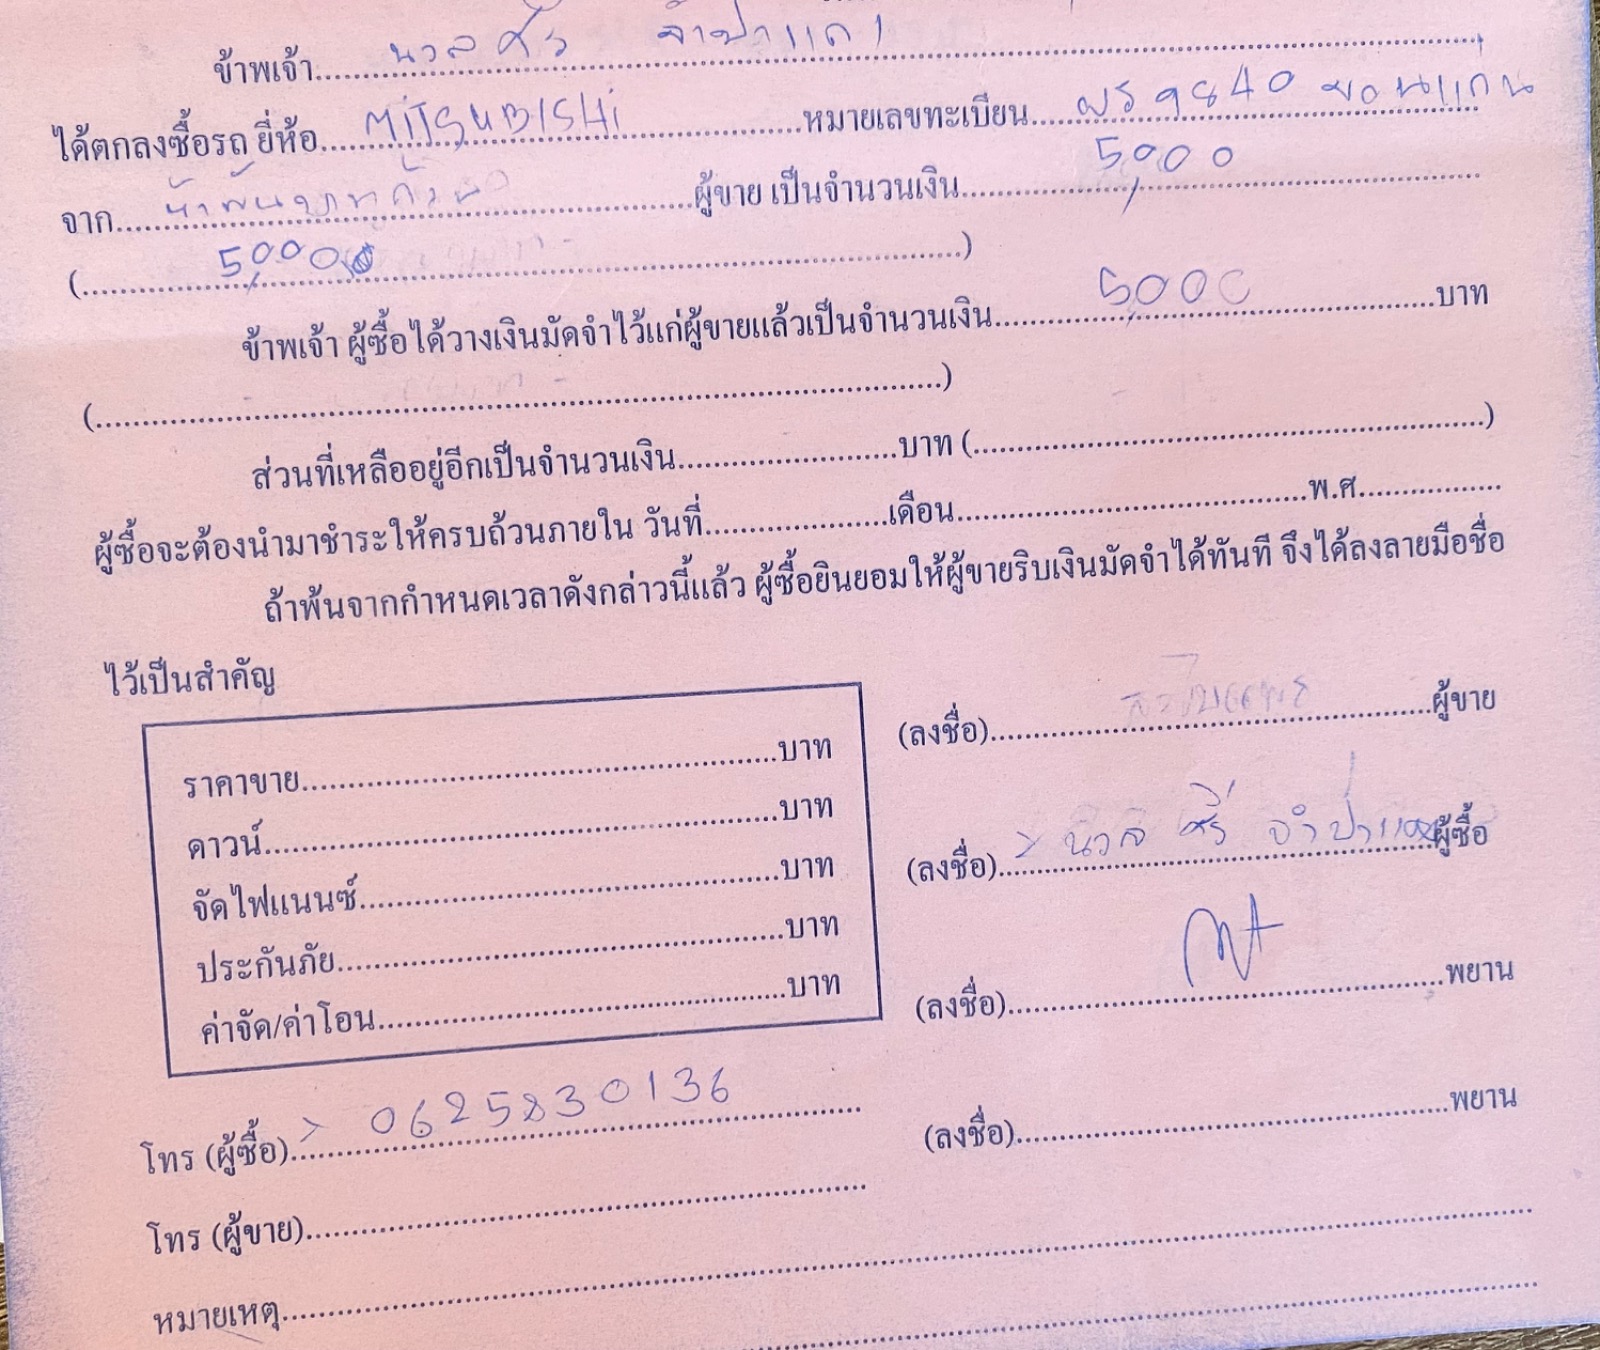 ข้าพเจ้า นวลศรี จำปาแดง
ได้ตกลงซื้อรถ ยี่ห้อ MITSUBISHI หมายเลขทะเบียน ผร 9840 ขอนแก่น
จาก ผู้ขาย เป็นจำนวนเงิน 5,000
(5,000)
ข้าพเจ้า ผู้ซื้อได้วางเงินมัดจำไว้แก่ผู้ขายแล้วเป็นจำนวนเงิน 5,000 บาท
(.....)
ส่วนที่เหลืออยู่อีกเป็นจำนวนเงิน.....บาท (.....)
ผู้ซื้อจะต้องนำมาชำระให้ครบถ้วนภายใน วันที่.....เดือน.....พ.ศ.....
ถ้าพ้นจากกำหนดเวลาดังกล่าวนี้แล้ว ผู้ซื้อยินยอมให้ผู้ขายริบเงินมัดจำได้ทันที จึงได้ลงลายมือชื่อ
ไว้เป็นสำคัญ
(ลงชื่อ).....ผู้ขาย
ราคาขาย.....บาท
ดาวน์.....บาท
(ลงชื่อ) นวลศรี จำปาแดง ผู้ซื้อ
จัดไฟแนนซ์.....บาท
ประกันภัย.....บาท
(ลงชื่อ).....พยาน
ค่าจัด/ค่าโอน.....บาท
โทร (ผู้ซื้อ) 0625830136
(ลงชื่อ).....พยาน
โทร (ผู้ขาย).....
หมายเหตุ.....